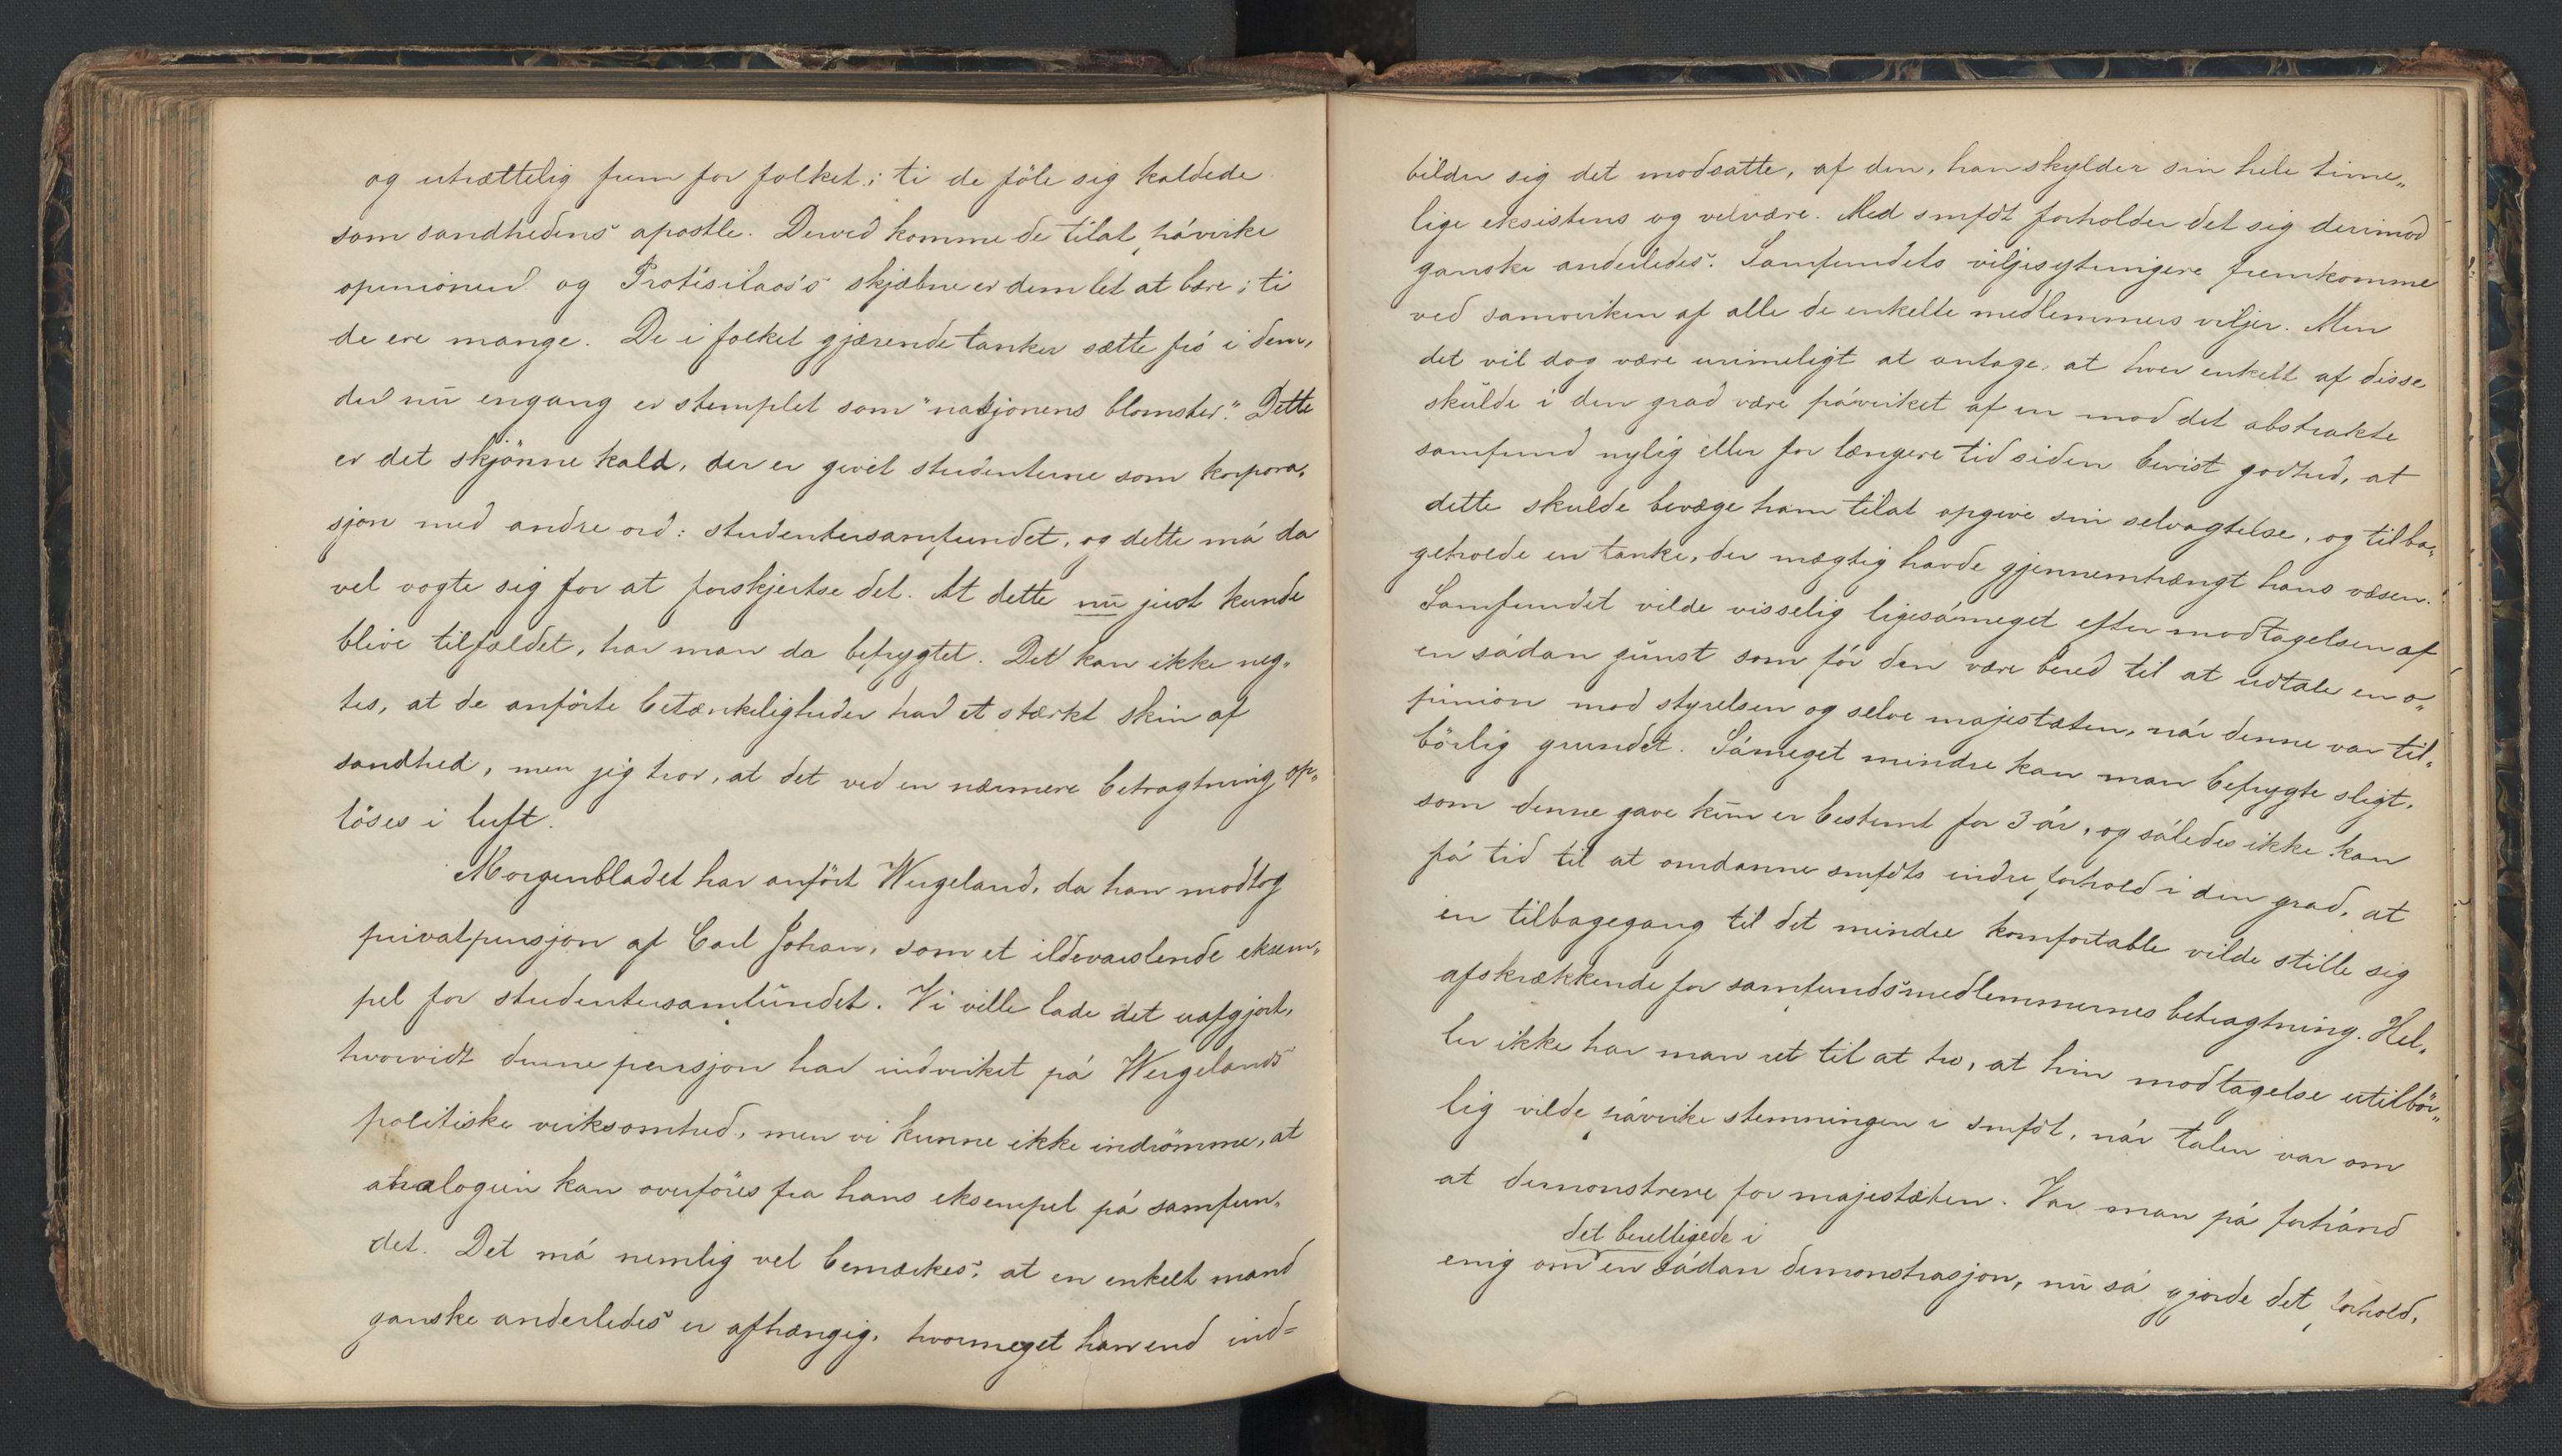 og utrættelig frem for folket; ti de föle sig kaldede
som sandhedens apostle. Derved komme de tilat påvirke
opinionen og Protesilaos's skjæbne er dem let at bære; ti
de ere mange. De i folket gjærende tanker sætte frö i dem,
der nu engang er stemplet som "nasjonens blomster." Dette
er det skjönne kald, der er givet studenterne som korpora„
sjon med andre ord: studentersamfundet, og dette må da
vel vogte sig for at forskjertse det. At dette nu just kunde
blive tilfældet, har man da befrygtet. Det kan ikke neg„
tes, at de anförte betænkeligheder har et stærkt skin af
sandhed, men jeg tror, at det ved en nærmere betragtning op„
löses i luft.
Morgenbladet har anfört Wergeland, da han modtog
privatpensjon af Carl Johan, som et ildevarslende eksem„
pel for studentersamfundet. Vi ville lade det uafgjort,
hvorvidt denne pensjon har indvirket på Wergelands
politiske virksomhed, men vi kunne ikke indrömme, at
analogien kan overföres fra hans eksempel på samfun„
det. Det må nemlig vel bemærkes, at en enkelt mand
ganske anderledes er afhængig, hvormeget han end ind=
bilder sig det modsatte, af den, han skylder sin hele time„
lige eksistens og velvære. Med smfdt forholder det sig derimod
ganske anderledes. Samfundets viljesytringer fremkomme
ved samvirken af alle de enkelte medlemmers viljer. Men
det vil dog være urimeligt at antage, at hver enkelt af disse
skulde i den grad være påvirket af en mod det abstrakte
samfund nylig eller for længere tid siden bevist godhed, at
dette skulde bevæge ham tilat opgive sin selvagtelse, og tilba„
geholde en tanke, der mægtig havde gjennemtrængt hans væsen.
Samfundet vilde visselig ligesåmeget efter modtagelsen af
en sådan gunst som för den være bered til at udtale en o„
pinion mod styrelsen og selve majestæten, når denne var til„
börlig grundet. Såmeget mindre kan man befrygte sligt,
som denne gave kun er bestemt for 3 år, og således ikke kan
få tid til at omdanne smfdts indre forhold i den grad, at
en tilbagegang til det mindre komfortable vilde stille sig
afskrækkende for samfundsmedlemmernes betragtning. Hel„
ler ikke har man ret til at tro, at hin modtagelse utilbör„
lig vilde påvirke stemningen i smfdt, når talen var om
at demonstrere for majestæten. Var man på forhånd
det berettigede i
enig om en sådan demonstrasjon, nu så gjorde det forhold,